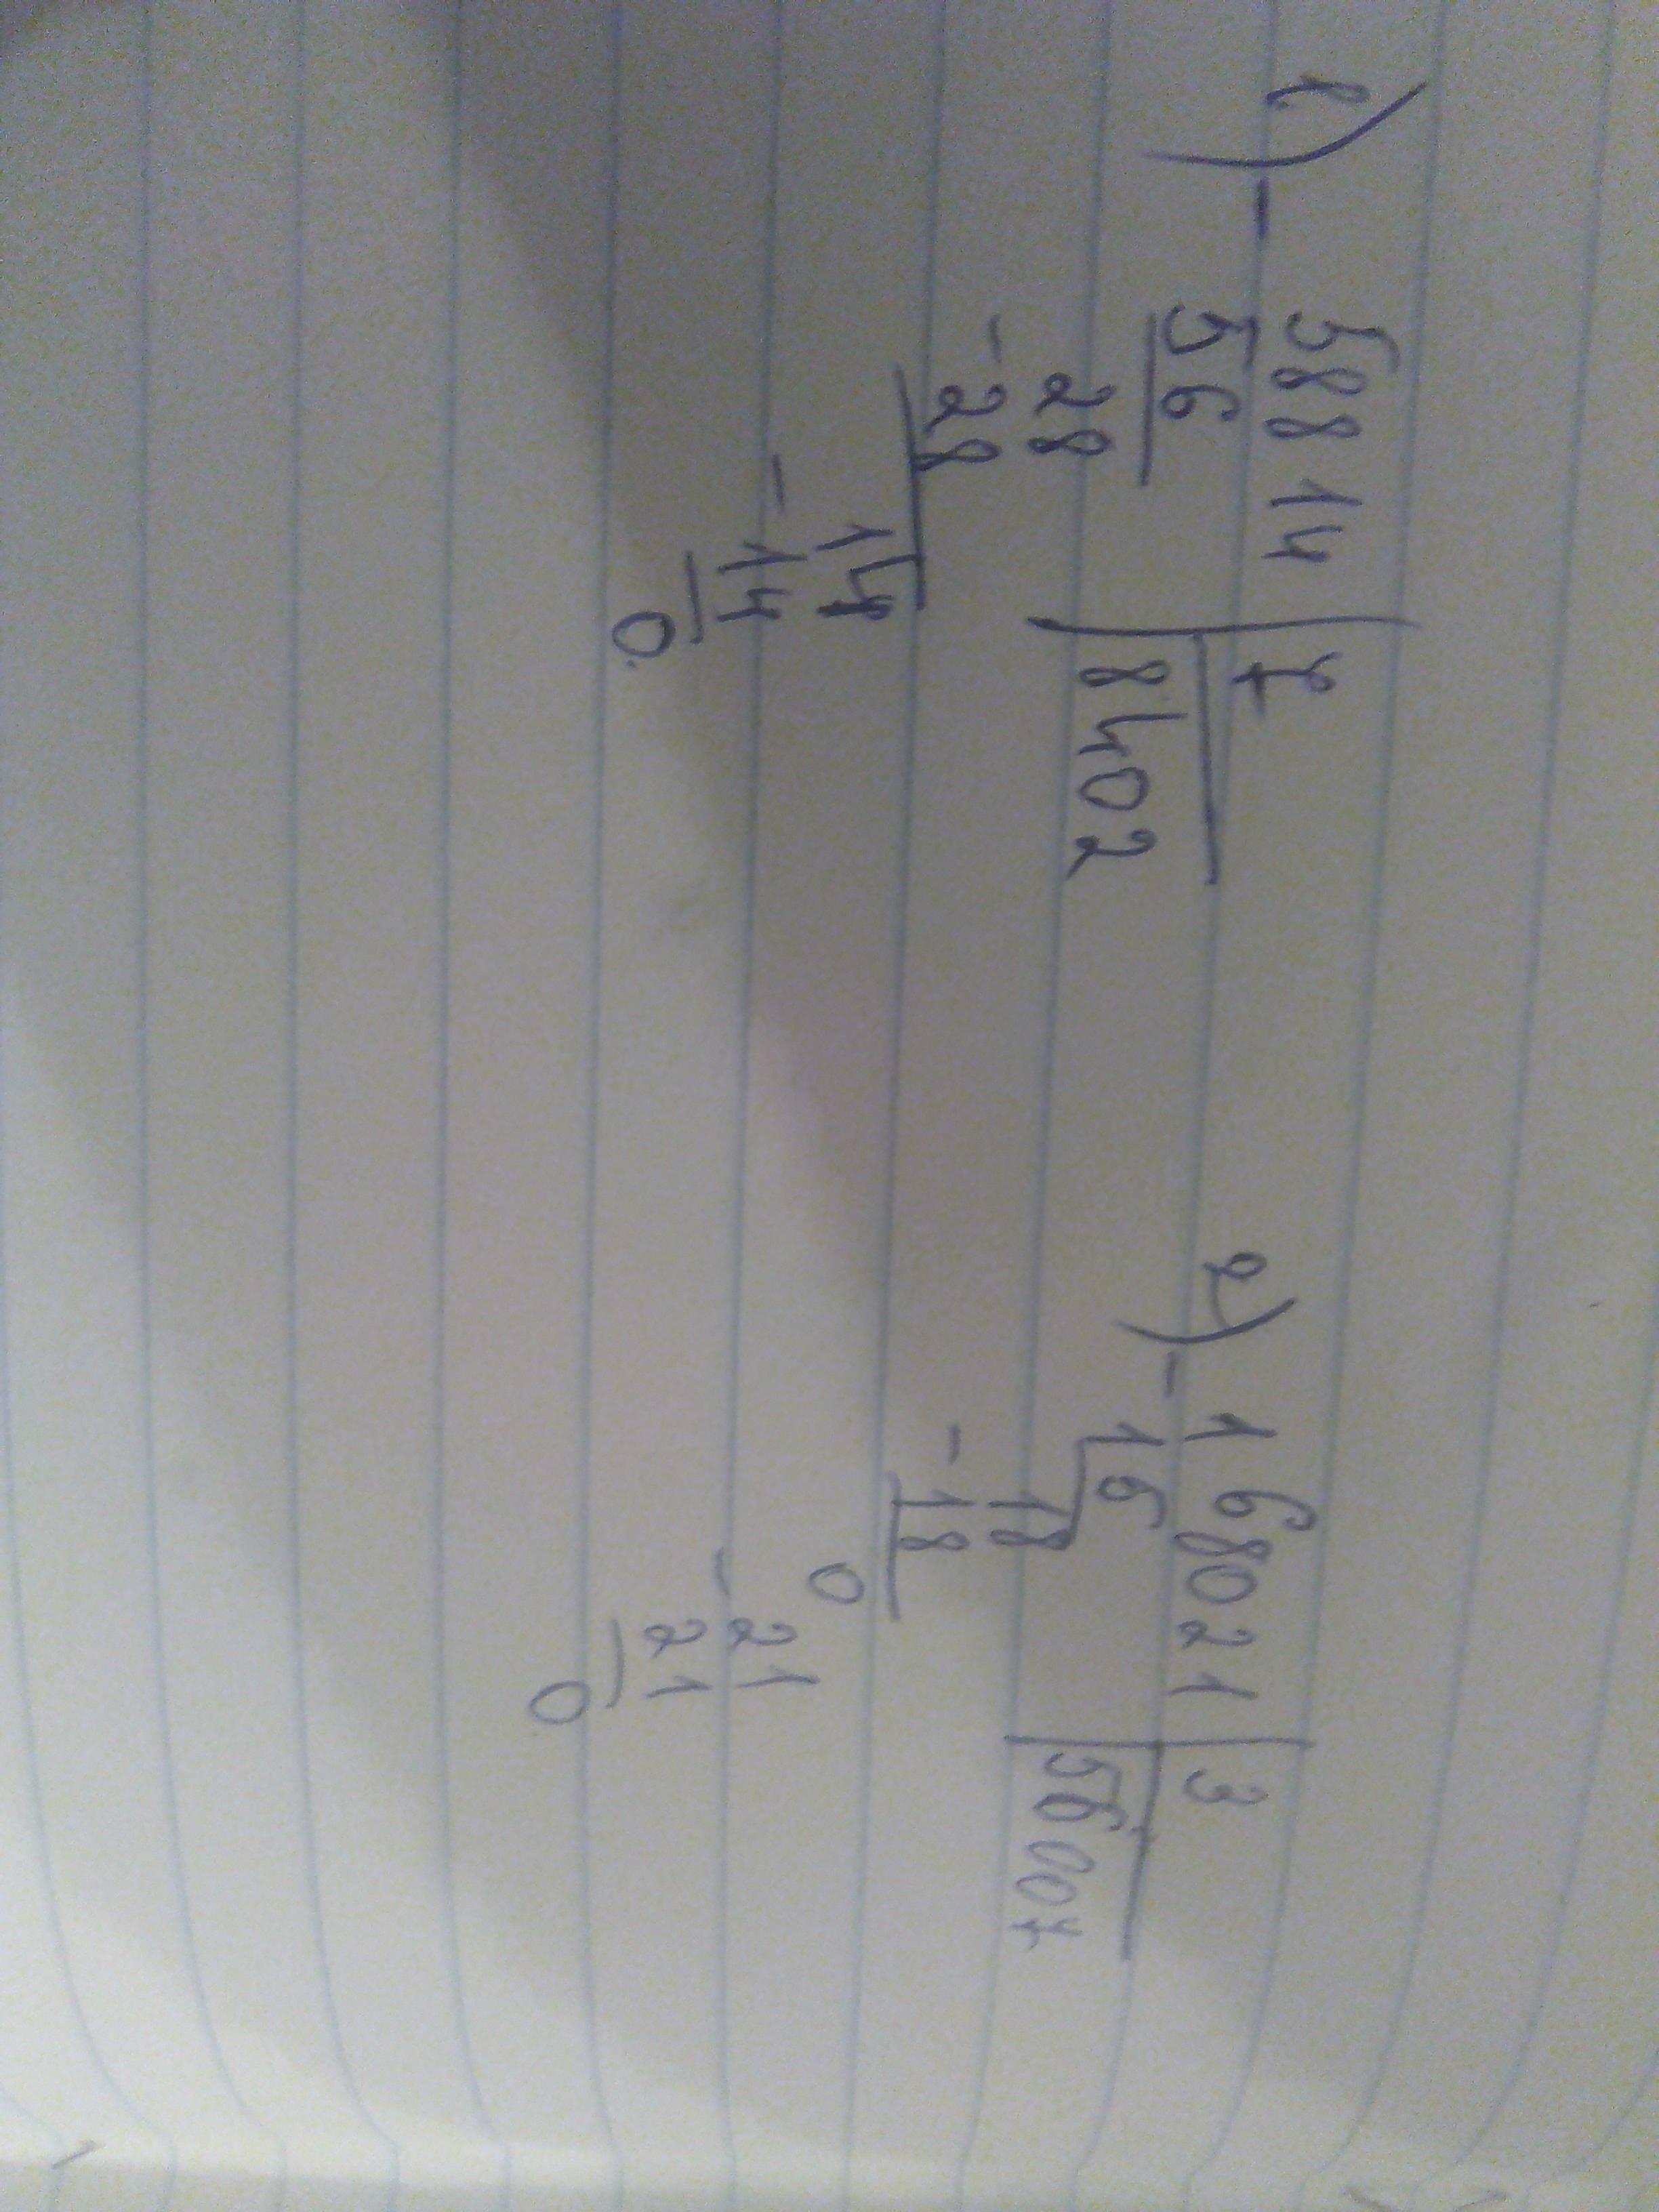 1) - 58814 | 7
56 | 8402
28
- 28
14
- 14
0
2) - 168021 | 3
16 | 56007
18
- 18
0
- 21
21
0